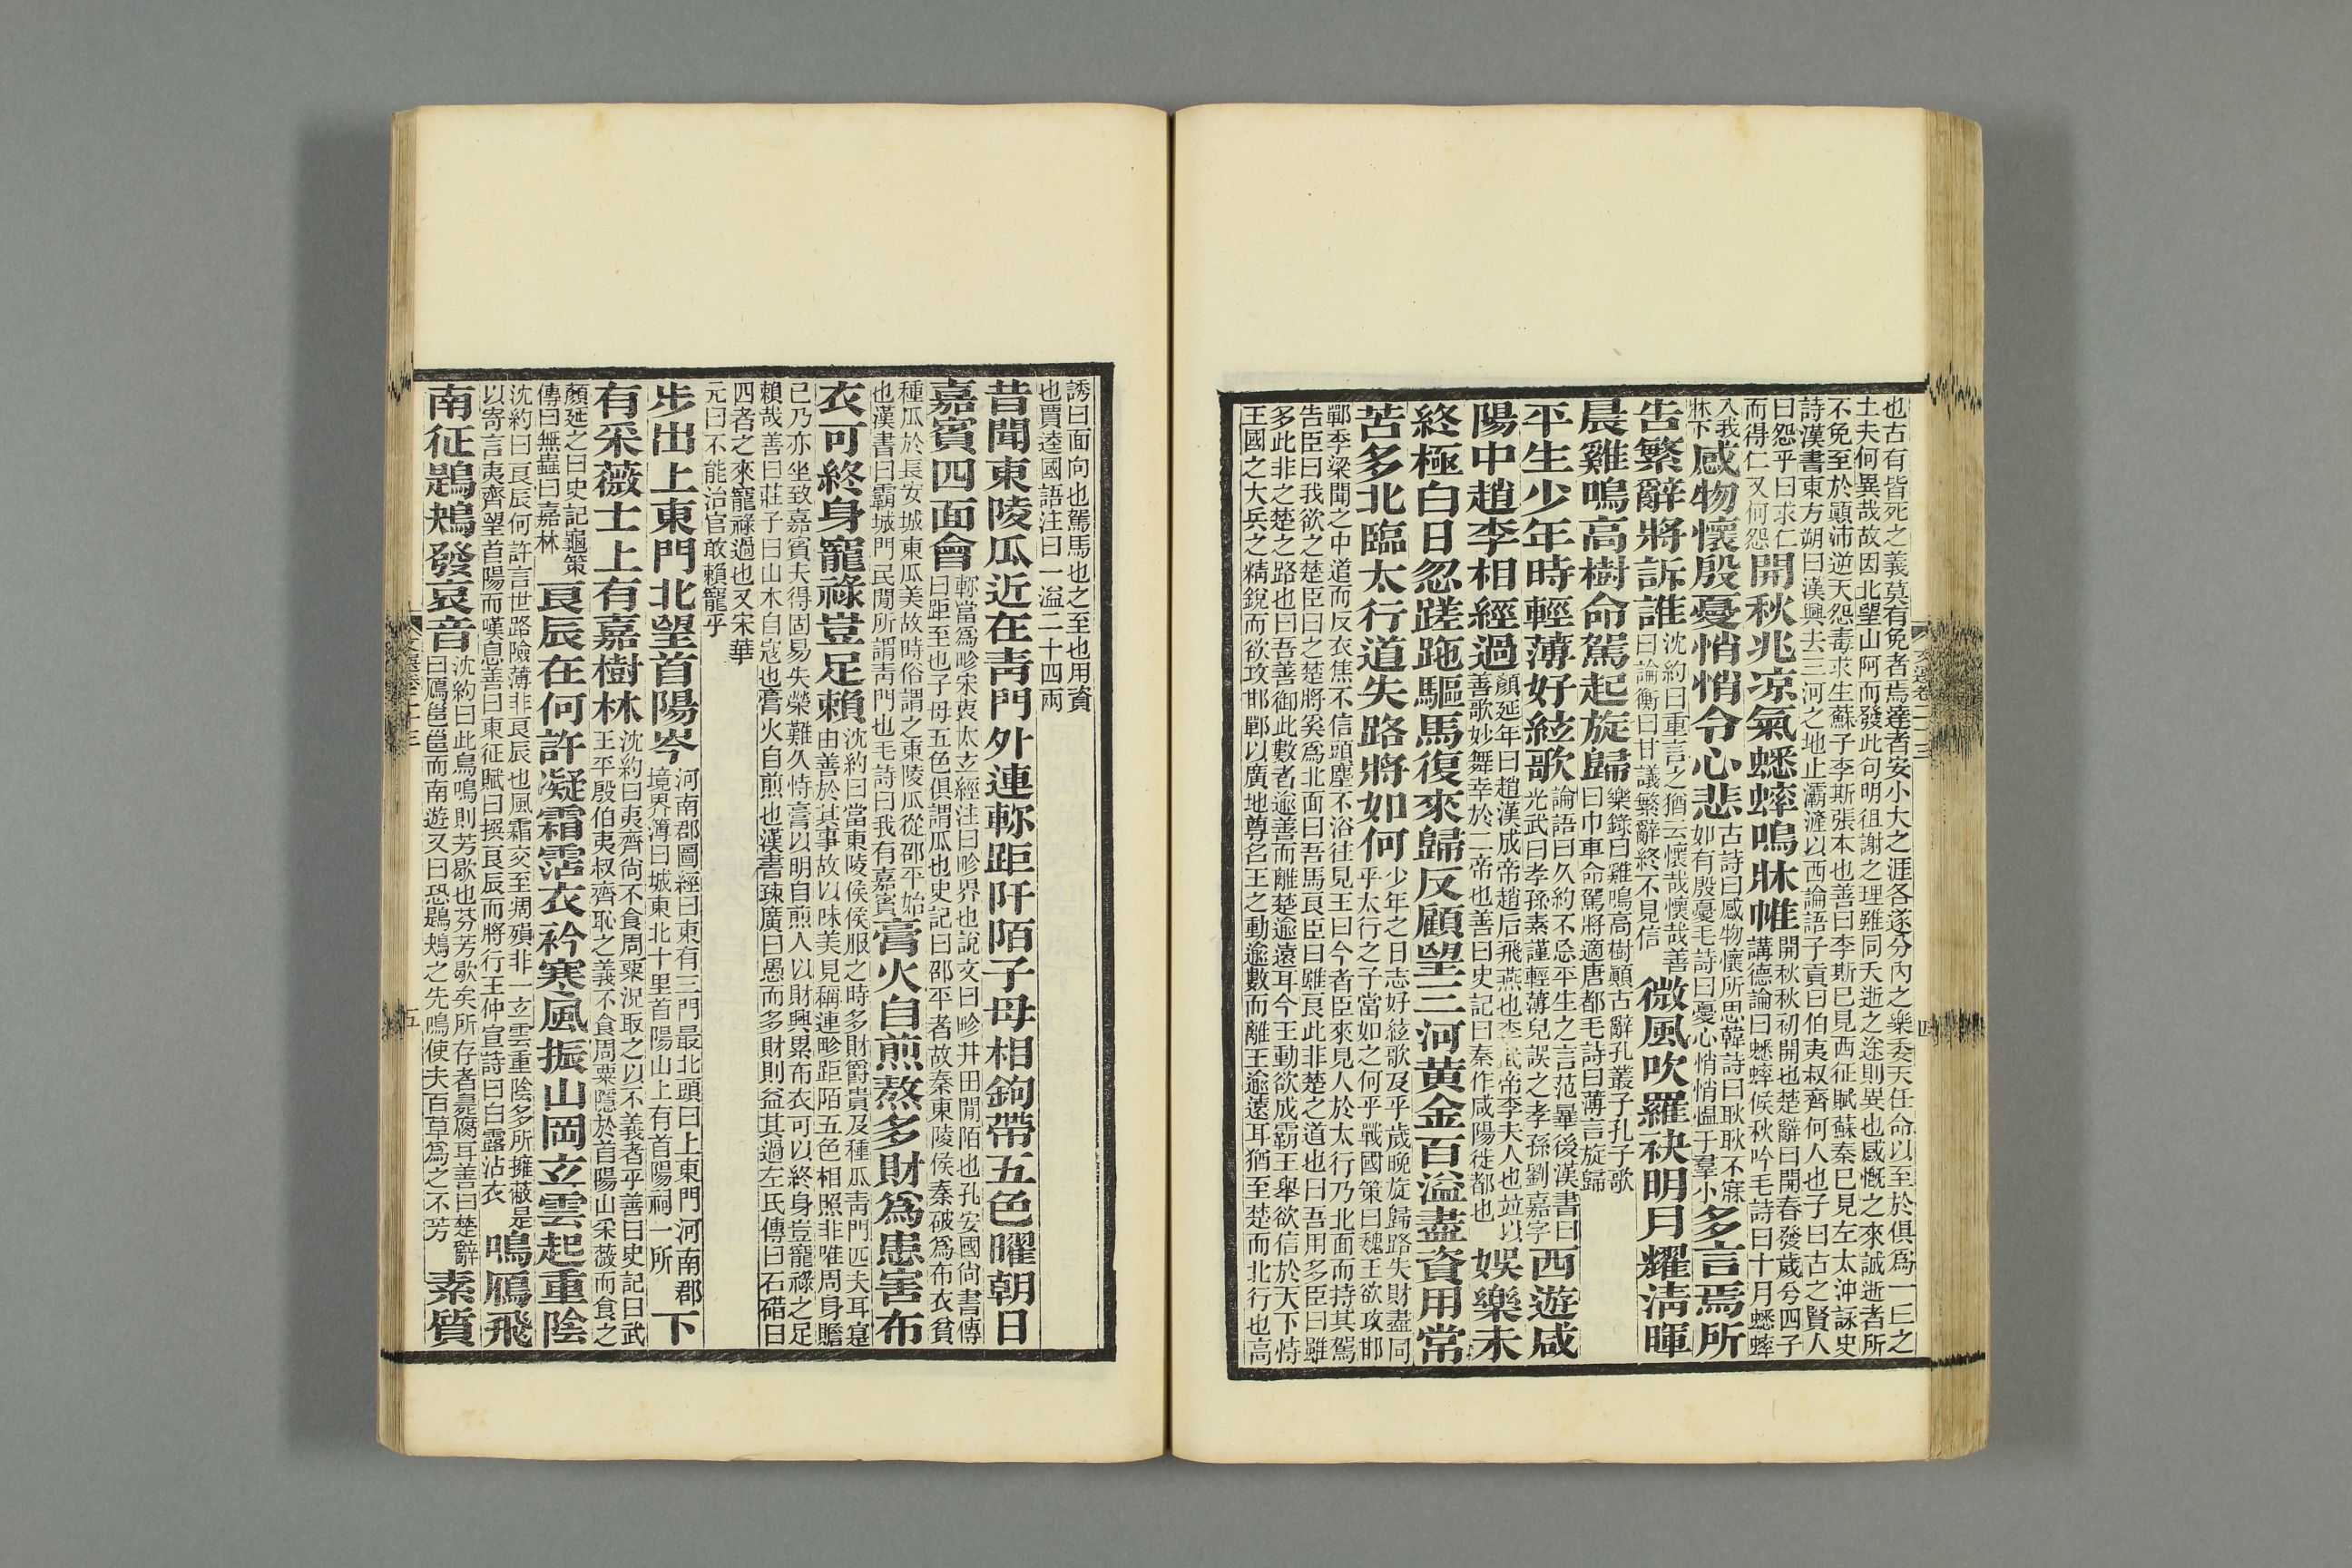 也古有皆死之義莫有免者焉達者安小大之涯各遂分內之樂委天任命以至於俱爲一丘之
土夫何異哉故因北望山阿而發此句明徂謝之理雖同夭逝之途則異也感慨之來誠逝者所
不免至於顚沛逆天怨毒求生蘇子李斯張本也善曰李斯已見西征賦蘇秦已見左太沖詠史
詩漢書東方朔曰漢興去三河之地止灞滻以西論語子貢曰伯夷叔齊何人也子曰古之賢人
曰怨乎曰求仁而得仁又何怨開秋兆凉氣蟋蟀鳴牀帷開秋秋初開也楚辭曰開春發歲兮四子講德論曰蟋蟀候秋吟毛詩曰十月蟋蟀
入我牀下感物懷殷憂悄悄令心悲古詩曰感物懷所思韓詩曰耿耿不寐如有殷憂毛詩曰憂心悄悄慍于羣小多言焉所
告繁辭將訴誰沈約曰重言之猶云懷哉懷哉善曰論衡曰甘議繁辭終不見信微風吹羅袂明月耀淸暉
晨雞鳴高樹命駕起旋歸樂錄曰雞鳴高樹顚古辭孔叢子孔子歌曰巾車命駕將適唐都毛詩曰薄言旋歸
平生少年時輕薄好絃歌論語曰久約不忘平生之言范曄後漢書曰光武曰孝孫素謹輕薄兒誤之孝孫劉嘉字西遊咸
陽中趙李相經過顏延年曰趙漢成帝趙后飛燕也李武帝李夫人也竝以善歌妙舞幸於二帝也善曰史記曰秦作咸陽徙都也娛樂未
終極白日忽蹉跎驅馬復來歸反顧望三河黃金百溢盡資用常
苦多北臨太行道失路將如何少年之日志好絃歌及乎歲晚旋歸路失財盡同乎太行之子當如之何乎戰國策曰魏王欲攻邯
鄲季梁聞之中道而反衣焦不信頭塵不浴往見王曰今者臣來見人於太行乃北面而持其駕
告臣曰我欲之楚臣曰之楚將奚爲北面曰吾馬良臣曰雖良此非楚之道也曰吾用多臣曰雖
多此非之楚之路也曰吾善御此數者逾善而離楚逾遠耳今王動欲成霸王舉欲信於天下恃
王國之大兵之精銳而欲攻邯鄲以廣地尊名王之動逾數而離王逾遠耳猶至楚而北行也高
文選卷二十三
四
誘曰面向也駕馬也之至也用資
也賈逵國語注曰一溢二十四兩
昔聞東陵瓜近在靑門外連畛距阡陌子母相鉤帶五色曜朝日
嘉賓四面會畛當爲畛宋衷太玄經注曰畛界也說文曰畛井田閒陌也孔安國尙書傳曰距至也子母五色俱謂瓜也史記曰邵平者故秦東陵侯秦破爲布衣貧
種瓜於長安城東瓜美故時俗謂之東陵瓜從邵平始也漢書曰霸城門民閒所謂靑門也毛詩曰我有嘉賓膏火自煎熬多財爲患害布
衣可終身寵祿豈足賴沈約曰當東陵侯侯服之時多財爵貴及種瓜靑門匹夫耳寔由善於其事故以味美見稱連畛距陌五色相照非唯周身贍
己乃亦坐致嘉賓夫得固易失榮難久恃膏以明自煎人以財興累布衣可以終身豈寵祿之足
賴哉善曰莊子曰山木自寇也膏火自煎也漢書疎廣曰愚而多財則益其過左氏傳曰石碏曰
四者之來寵祿過也又宋華
元曰不能治官敢賴寵乎
步出上東門北望首陽岑河南郡圖經曰東有三門最北頭曰上東門河南郡境界簿曰城東北十里首陽山上有首陽祠一所下
有采薇士上有嘉樹林沈約曰夷齊尙不食周粟況取之以不義者乎善曰史記曰武王平殷伯夷叔齊恥之義不食周粟隱於首陽山采薇而食之
顏延之曰史記龜策傳曰無蟲曰嘉林良辰在何許凝霜霑衣衿寒風振山岡玄雲起重陰
沈約曰良辰何許言世路險薄非良辰也風霜交至凋殞非一玄雲重陰多所擁蔽是以寄言夷齊望首陽而嘆息善曰東征賦曰撰良辰而將行王仲宣詩曰白露沾衣鳴鴈飛
南征鶗鴂發哀音沈約曰此鳥鳴則芳歇也芬芳歇矣所存者臭腐耳善曰楚辭曰鴈邕邕而南遊又曰恐鶗鴂之先鳴使夫百草爲之不芳素質
文選卷二十三
五